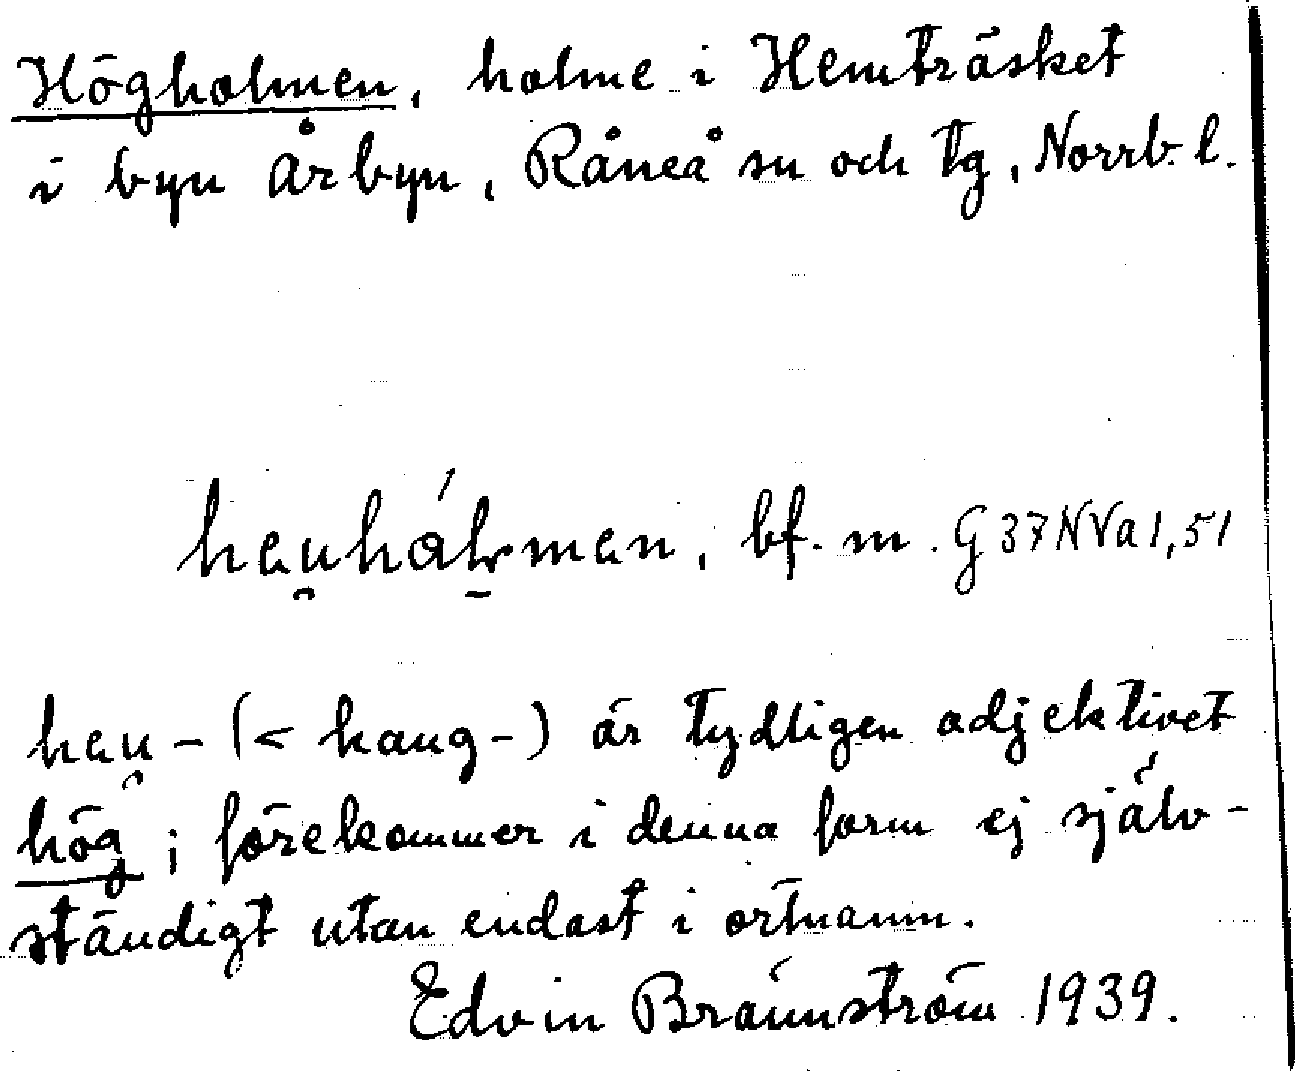 Högholmen, holme i Hemträsket
i byn Årbyn, Råneå sn och tg, Norrb. l.
hau̯hålmen, bf. m. G37NVa1,51
hau̯- (< haug-) är tydligen adjektivet
hög; förekommer i denna form ej själv-
ständigt utan endast i ortnamn.
Edvin Brännström 1939.